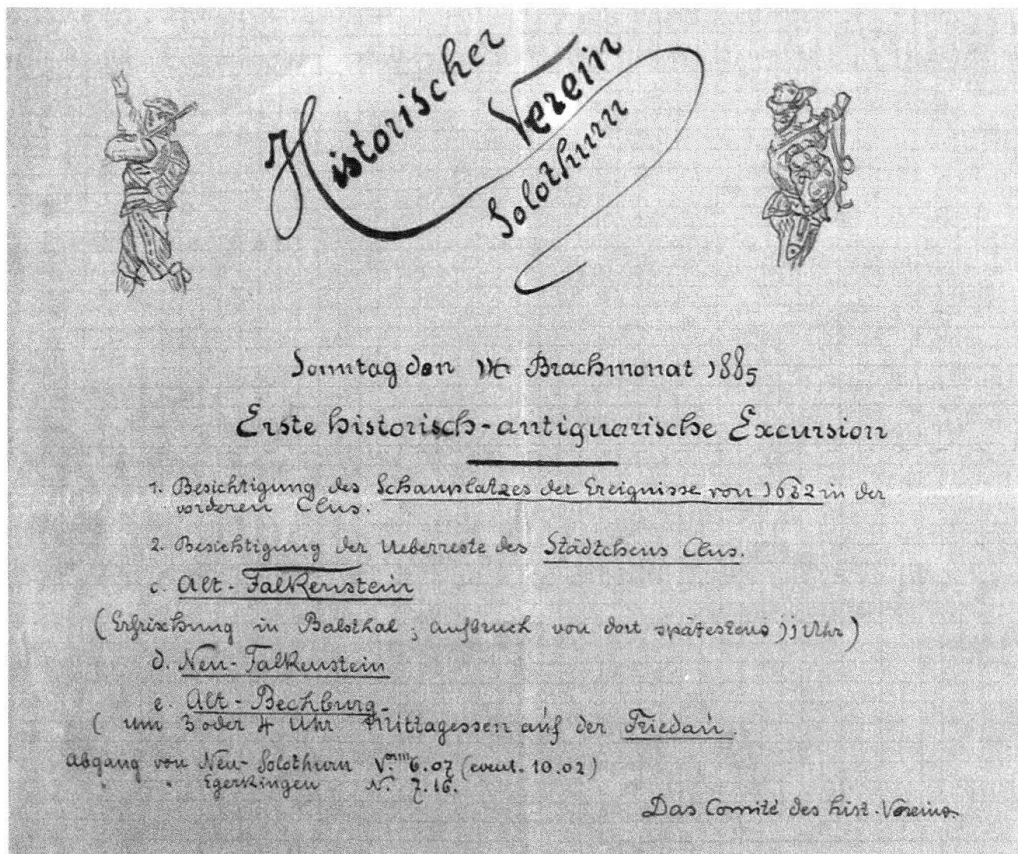 Historischer
Verein
Solothurn
Sonntag den 14 Brachmonat 1885
Erste historisch-antiquarische Excursion
1. Besichtigung des Schauplatzes der Ereignisse von 1632 in der
vorderen Clus.
2. Besichtigung der Ueberreste des Städtchens Clus.
c. Alt-Falkenstein
(Erfrischung in Balsthal; Aufbruch von dort spätestens 11 Uhr)
d. Neu-Falkenstein
e. Alt-Bechburg.
( um 3 oder 4 Uhr Mittagessen auf der Friedau.
Abgang von Neu-Solothurn Vorm 6.07 (event. 10.02)
" " Egerkingen N. 7.16.
Das Comité des hist. Vereins.